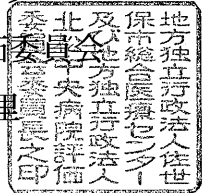 委員会
里
地方独立行政法人佐世
保市総合医療センター
及び地方独立行政法人
北松中央病院評価
委員会委員長之印